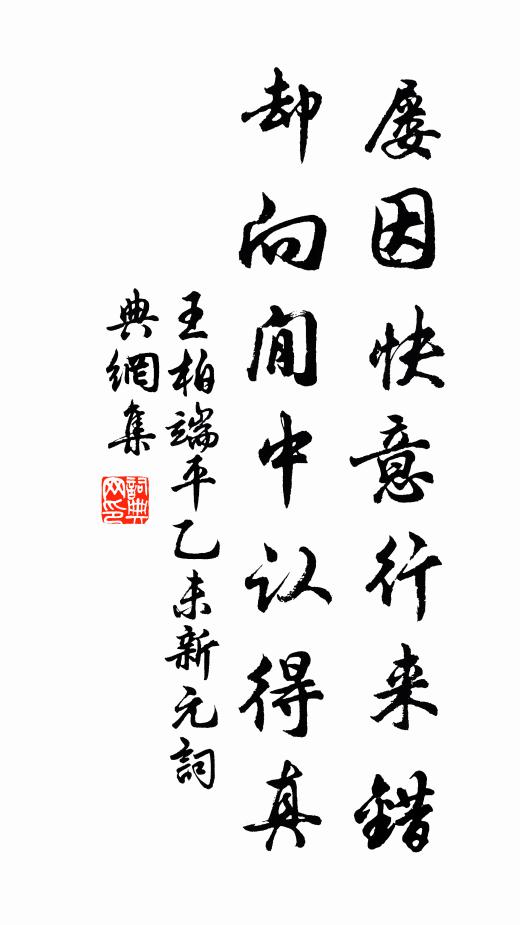 屡因快意行来錯
却向闲中认得真
王柏端平乙未新元詞
典網集
詞典网印